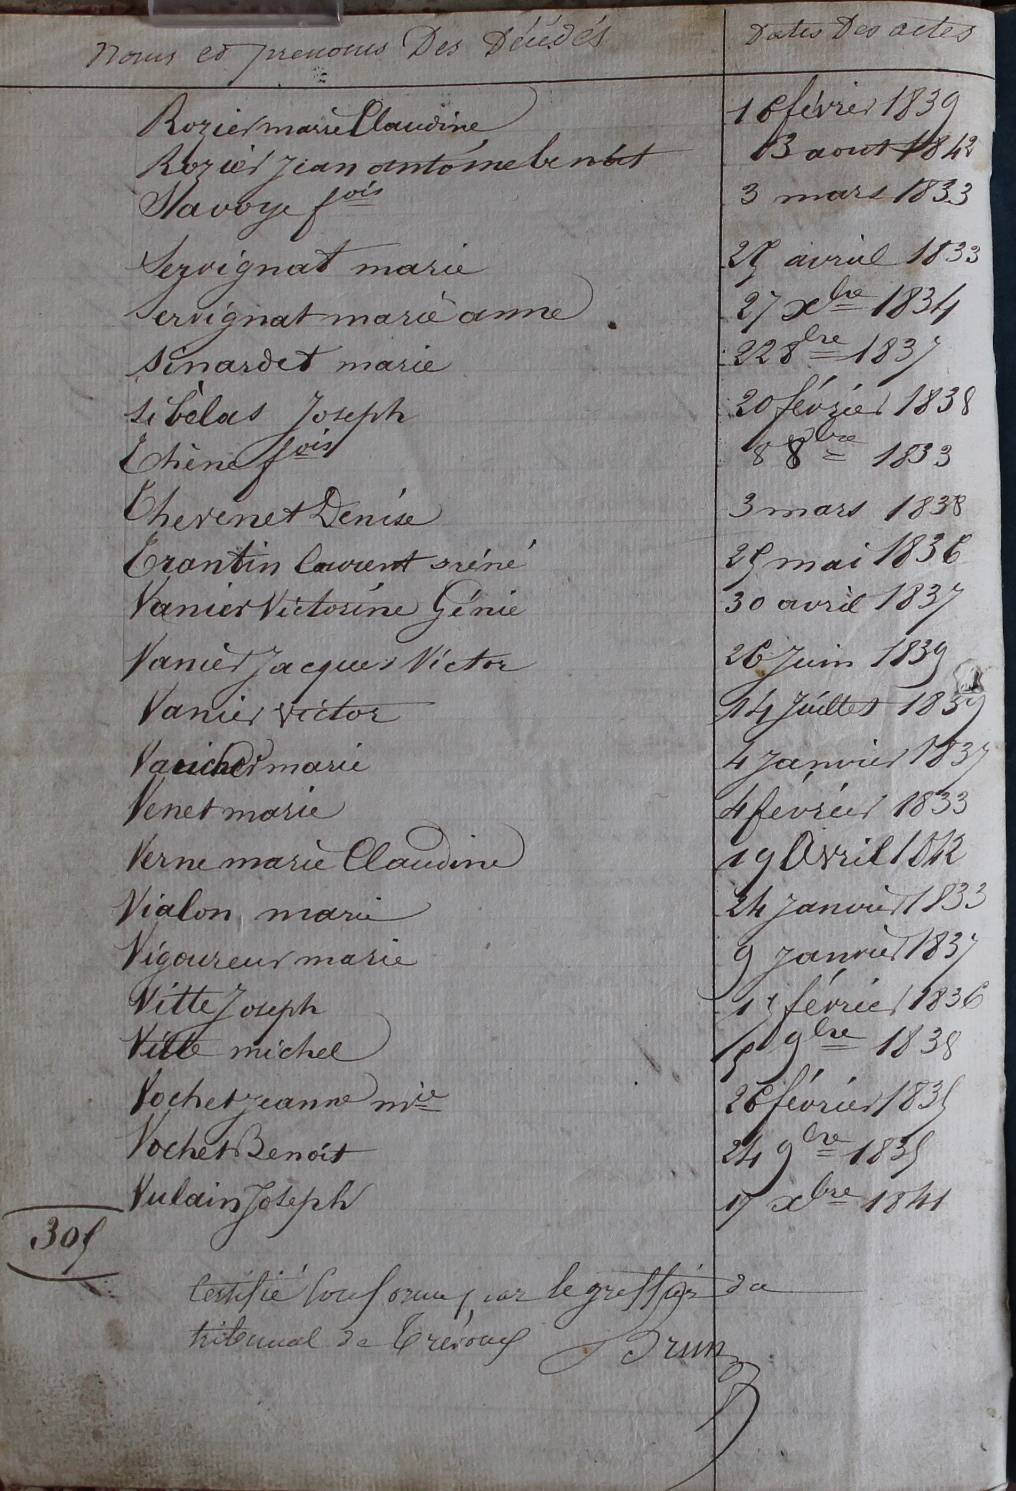 Noms et prenoms Des Décédés Dates Des actes
Rozier marie Claudine 16 février 1839
Rozier Jean antoine benoit 13 aout 1842
Savoye fois 3 mars 1833
Servignat marie 25 avril 1833
Servignat marie anne 27 xbre 1834
Sinardet marie 22 8bre 1837
Sibèlas Joseph 20 février 1838
Thène fois 8 8bre 1833
Thevenet Denise 3 mars 1838
Trantin laurent réné 25 mai 1836
Vanier Victorine Génie 30 avril 1837
Vanier Jacques Victor 26 Juin 1839
Vanier victor 14 Juillet 1839
marie 4 Janvier 1837
Venet marie 4 février 1833
Verne marie Claudine 19 Avril 1842
Vialon marie 24 Janvier 1833
Vigoureux marie 9 Janvier 1837
Vitte Joseph 15 février 1836
Vitte michel 15 9bre 1838
Vochet Jeanne mie 26 février 1835
Vochet Benoit 24 9bre 1835
Vulain Joseph 17 xbre 1841
305
Certifié Conforme par le greffier du
tribunal de Trévoux Brun